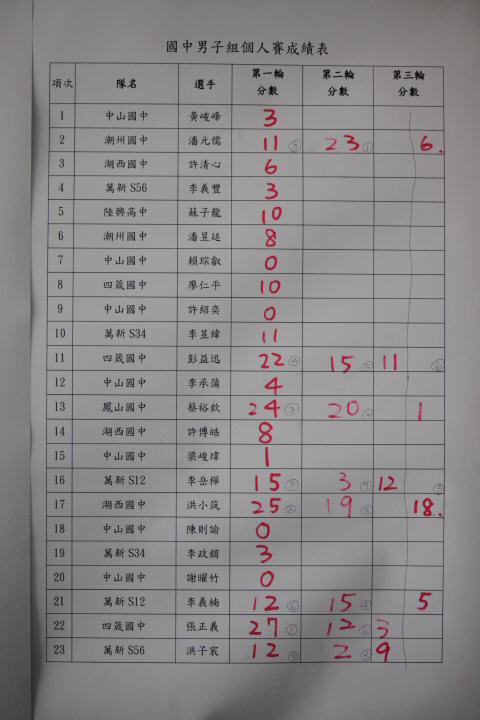 國中男子組個人賽成績表
項次 隊名 選手 第一輪分數 第二輪分數 第三輪分數
1 中山國中 黃峻峰 3
2 潮州國中 潘元儒 11 ③ 23 ① 6.
3 湖西國中 許清心 6
4 萬新S56 李義豐 3
5 陸興高中 蘇子龍 10
6 潮州國中 潘昱廷 8
7 中山國中 賴琮叡 0
8 四箴國中 廖仁平 10
9 中山國中 許紹奕 0
10 萬新S34 李昱緯 11
11 四箴國中 彭益迅 22 15 11
12 中山國中 李承蒲 4
13 鳳山國中 蔡裕欽 24 ③ 20 ② 1
14 湖西國中 許博皓 8
15 中山國中 梁峻瑋 1
16 萬新S12 李岳樺 15 ⑤ 3 12
17 湖西國中 洪小筑 25 ② 19 ③ 18.
18 中山國中 陳則諭 0
19 萬新S34 李政錩 3
20 中山國中 謝曜竹 0
21 萬新S12 李義楠 12 ⑥ 15 ④ 5
22 四箴國中 張正義 27 ① 12 ⑥ 3
23 萬新S56 洪子宸 12 2 ⑧ 9